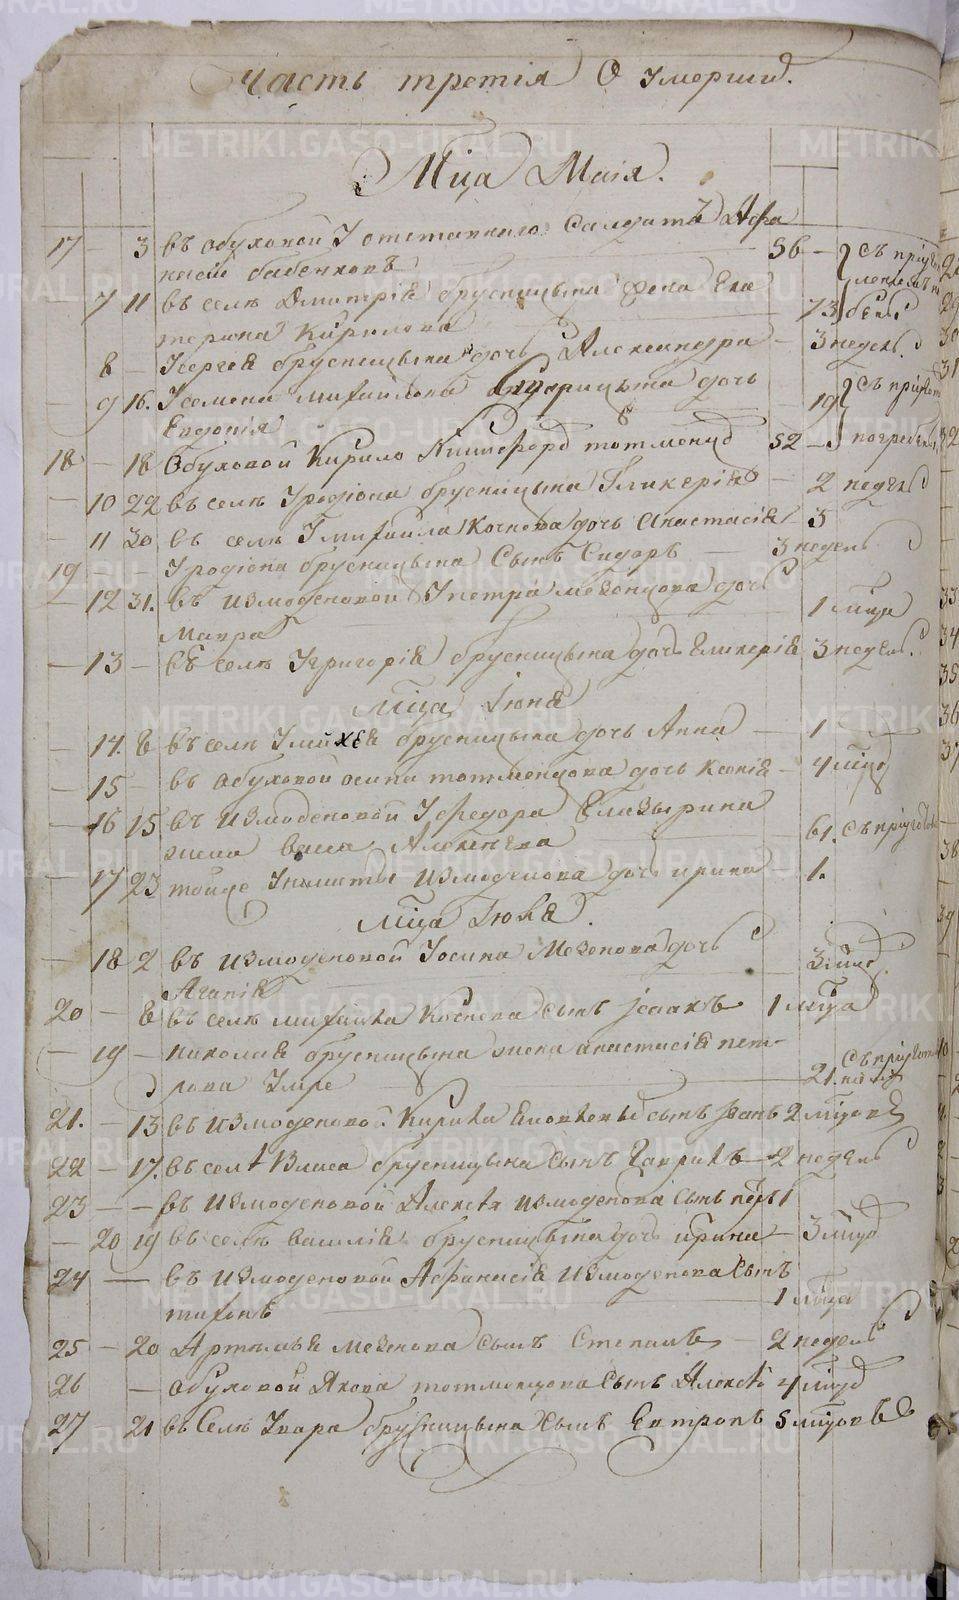 Часть третія О Умерши.
Мца Маія.
17 — 3 въ обуховой У отставнаго Салдатъ Афа
насій бабенковъ — 56 — съ пріу
7 11 въ селѣ Дмитрія брусницына жена Ека
терина Кирилова 73
8 — Усергея брусницына дочь Александра — 3 недел.
9 16. Усемена михайлова дочь
Евдокія 19 съ
18 — 18 Обуховой Кирило 52 — погреб
10 22 въ селѣ Уродіона брусницына Гликерія — 2 недел
11 30 въ селѣ Умихайла Коснова дочь Анастасія — 3
19 — — Уродіона брусницына Сынъ Сидоръ — 3 недел
12 31. въ измоденовой Упетра мезенцова дочь
Мавра 1 мца
13 — въ селѣ Угригорія брусницына дочь Гликерія 3 недел.
мца Іюня
14. 8 въ селѣ Умихея брусницына дочь Анна — 1
15 — въ обуховой осипа тотменцова дочь Ксенія — 4 мцо
16 15 въ измоденовой Уфедора Елизырина
жена Васса Алексеева 61. съ пріу
17 23 тойже Уникиты измоденова дочь ирина 1.
Мца Іюля.
18 2 въ измоденовой Уосипа Мезенова дочь
Агапія 3 мцо
20 — 8 въ селѣ михаила Коснова сынъ Ісаакъ 1 мца
19 — николая брусницына жена анастасія пет-
рова Умре 21. съ
21. — 13 въ измоденовой Кирила сынъ Иванъ 2 мцовъ
22 — 17. въ селѣ Власа брусницына Сынъ Гаврилъ — 2 недел
23 — — въ измоденовой Алексея измоденова сынъ петръ 1
20 19 въ селѣ василія брусницына дочь ирина — 3 мцо
24 — въ измоденовой Афанасія измоденова Сынъ
тихонъ 1 мца
25 — 20 Артемья мезенова сынъ Степанъ — 2 недел
26 — обуховой Якова тотменцова Сынъ Алексей 4 мцо
27 21 въ Селѣ Увара брусницына сынъ Евтропъ 5 мцовъ
METRIKI.GASO-URAL.RU